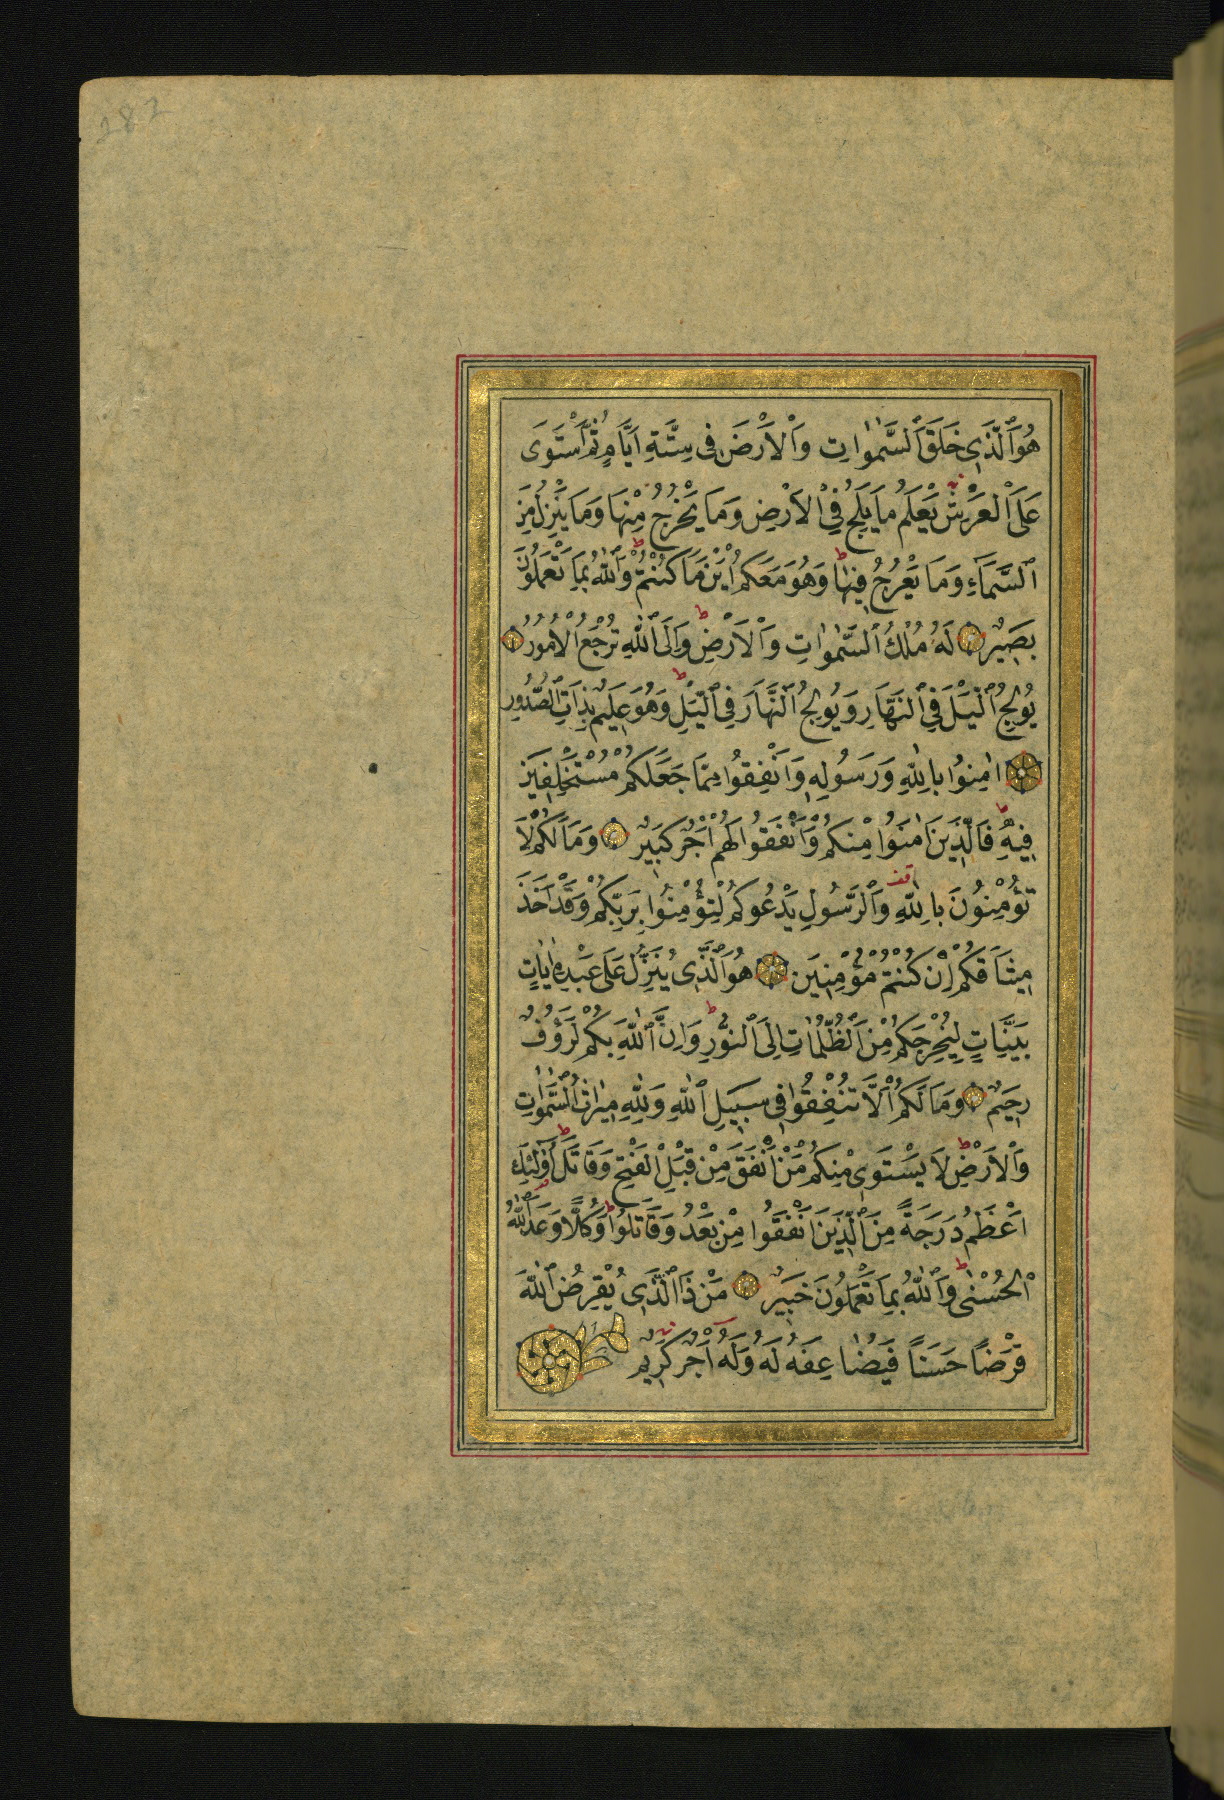 282
هُوَ ٱلَّذِي خَلَقَ ٱلسَّمٰوٰاتِ وَٱلْاَرْضَ فِي سِتَّةِ اَيَّامٍ ثُمَّ ٱسْتَوَى
عَلَى ٱلْعَرْشِ يَعْلَمُ مَا يَلِجُ فِي ٱلْاَرْضِ وَمَا يَخْرُجُ مِنْهَا وَمَا يَنْزِلُ مِنَ
ٱلسَّمَاءِ وَمَا يَعْرُجُ فِيهَا ط وَهُوَ مَعَكُمْ اَيْنَ مَا كُنْتُمْ ط وَٱللّٰهُ بِمَا تَعْمَلُونَ
بَصِيرٌ لَهُ مُلْكُ ٱلسَّمٰوٰاتِ وَٱلْاَرْضِ ط وَاِلَى ٱللّٰهِ تُرْجَعُ ٱلْاُمُورُ
يُولِجُ ٱلَّيْلَ فِي ٱلنَّهَارِ وَيُولِجُ ٱلنَّهَارَ فِي ٱلَّيْلِ ط وَهُوَ عَلِيمٌ بِذَاتِ ٱلصُّدُورِ
اٰمِنُوا بِاللّٰهِ وَرَسُولِهِ وَاَنْفِقُوا مِمَّا جَعَلَكُمْ مُسْتَخْلَفِينَ
فِيهِ ط فَالَّذِينَ اٰمَنُوا مِنْكُمْ وَاَنْفَقُوا لَهُمْ اَجْرٌ كَبِيرٌ وَمَا لَكُمْ لَا
تُؤْمِنُونَ بِاللّٰهِ وَٱلرَّسُولِ يَدْعُوكُمْ لِتُؤْمِنُوا بِرَبِّكُمْ وَقَدْ اَخَذَ
مِيثَاقَكُمْ اِنْ كُنْتُمْ مُؤْمِنِينَ هُوَ ٱلَّذِي يُنَزِّلُ عَلَى عَبْدِهِ اٰيَاتٍ
بَيِّنَاتٍ لِيُخْرِجَكُمْ مِنَ ٱلظُّلُمَاتِ اِلَى ٱلنُّورِ ط وَاِنَّ ٱللّٰهَ بِكُمْ لَرَؤُفٌ
رَحِيمٌ وَمَا لَكُمْ اَلَّا تُنْفِقُوا فِي سَبِيلِ ٱللّٰهِ وَلِلّٰهِ مِيرَاثُ ٱلسَّمٰوٰاتِ
وَٱلْاَرْضِ ط لَا يَسْتَوِي مِنْكُمْ مَنْ اَنْفَقَ مِنْ قَبْلِ ٱلْفَتْحِ وَقَاتَلَ ط اُولٰئِكَ
اَعْظَمُ دَرَجَةً مِنَ ٱلَّذِينَ اَنْفَقُوا مِنْ بَعْدُ وَقَاتَلُوا ط وَكُلًّا وَعَدَ ٱللّٰهُ
ٱلْحُسْنٰى ط وَٱللّٰهُ بِمَا تَعْمَلُونَ خَبِيرٌ مَنْ ذَا ٱلَّذِي يُقْرِضُ ٱللّٰهَ
قَرْضًا حَسَنًا فَيُضَاعِفَهُ لَهُ وَلَهُ اَجْرٌ كَرِيمٌ